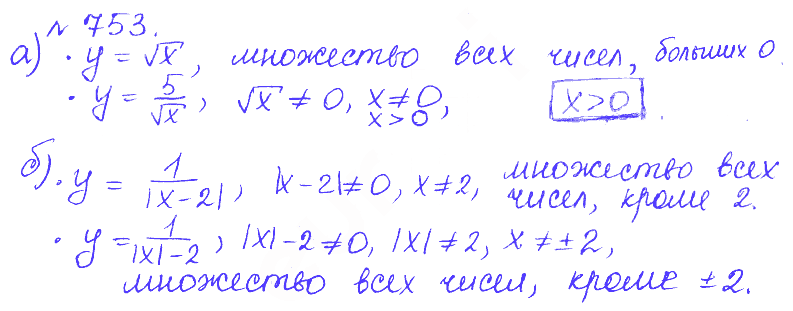 № 753.
а) · y = √x, множество всех чисел, больших 0.
· y = 5/√x, √x ≠ 0, x ≠ 0, x > 0, x>0.
б) · y = 1/|x-2|, |x-2| ≠ 0, x ≠ 2, множество всех чисел, кроме 2.
· y = 1/|x|-2, |x|-2 ≠ 0, |x| ≠ 2, x ≠ ±2,
множество всех чисел, кроме ±2.